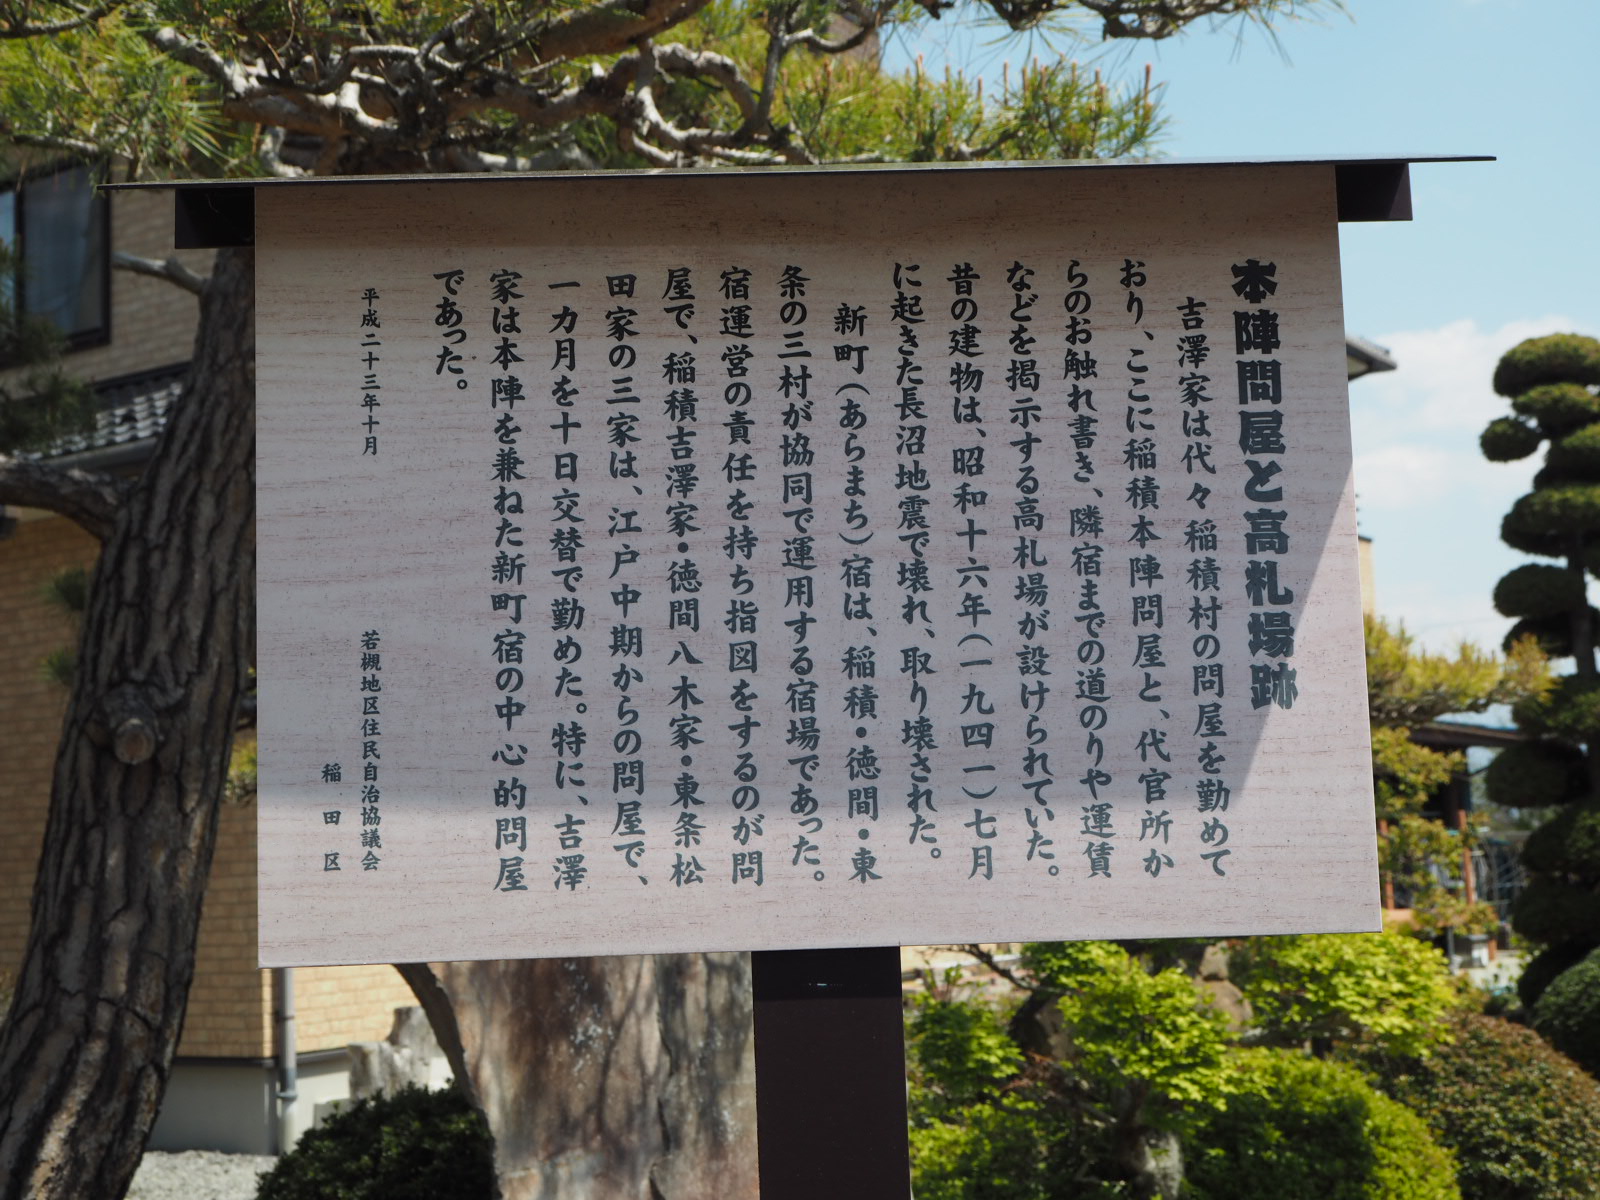 本陣問屋と高札場跡
吉澤家は代々稲積村の問屋を勤めて
おり、ここに稲積本陣問屋と、代官所か
らのお触れ書き、隣宿までの道のりや運賃
などを掲示する高札場が設けられていた。
昔の建物は、昭和十六年（一九四一）七月
に起きた長沼地震で壊れ、取り壊された。
新町（あらまち）宿は、稲積・徳間・東
条の三村が協同で運用する宿場であった。
宿運営の責任を持ち指図をするのが問
屋で、稲積吉澤家・徳間八木家・東条松
田家の三家は、江戸中期からの問屋で、
一カ月を十日交替で勤めた。特に、吉澤
家は本陣を兼ねた新町宿の中心的問屋
であった。
平成二十三年十月
若槻地区住民自治協議会
稲田区